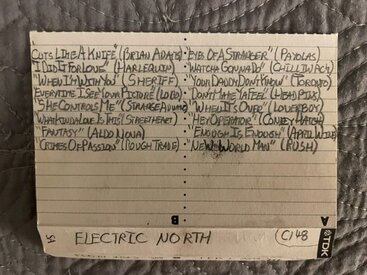 CUTS LIKE A KNIFE" (BRIAN ADAMS)
"I DID IT FOR LOVE" (HARLEQUIN)
"WHEN I'M WITH YOU" (SHERIFF)
EVERYTIME I SEE YOUR PICTURE
"SHE CONTROLS ME" (STRANGE
WHAT KINDA LOVE IS THIS (STREETHEART)
"FANTASY" (ALDO NOVA)
"CRIMES OF PASSION" (ROUGH TRADE)
"EYES OF A STRANGER" (PAYOLAS)
"WATCHA GONNA DO" (CHILLIWACK)
"YOUR DADDY DON'T KNOW" (TORONTO)
"DON'T MAKE YA FEEL" (HEADPINS)
"WHEN IT'S OVER" (LOVERBOY)
"HEY OPERATOR" (CONEY HATCH)
"ENOUGH IS ENOUGH" (APRIL WINE)
"NEW WORLD MAN" (RUSH)
B
A
ELECTRIC NORTH
C148
TDK